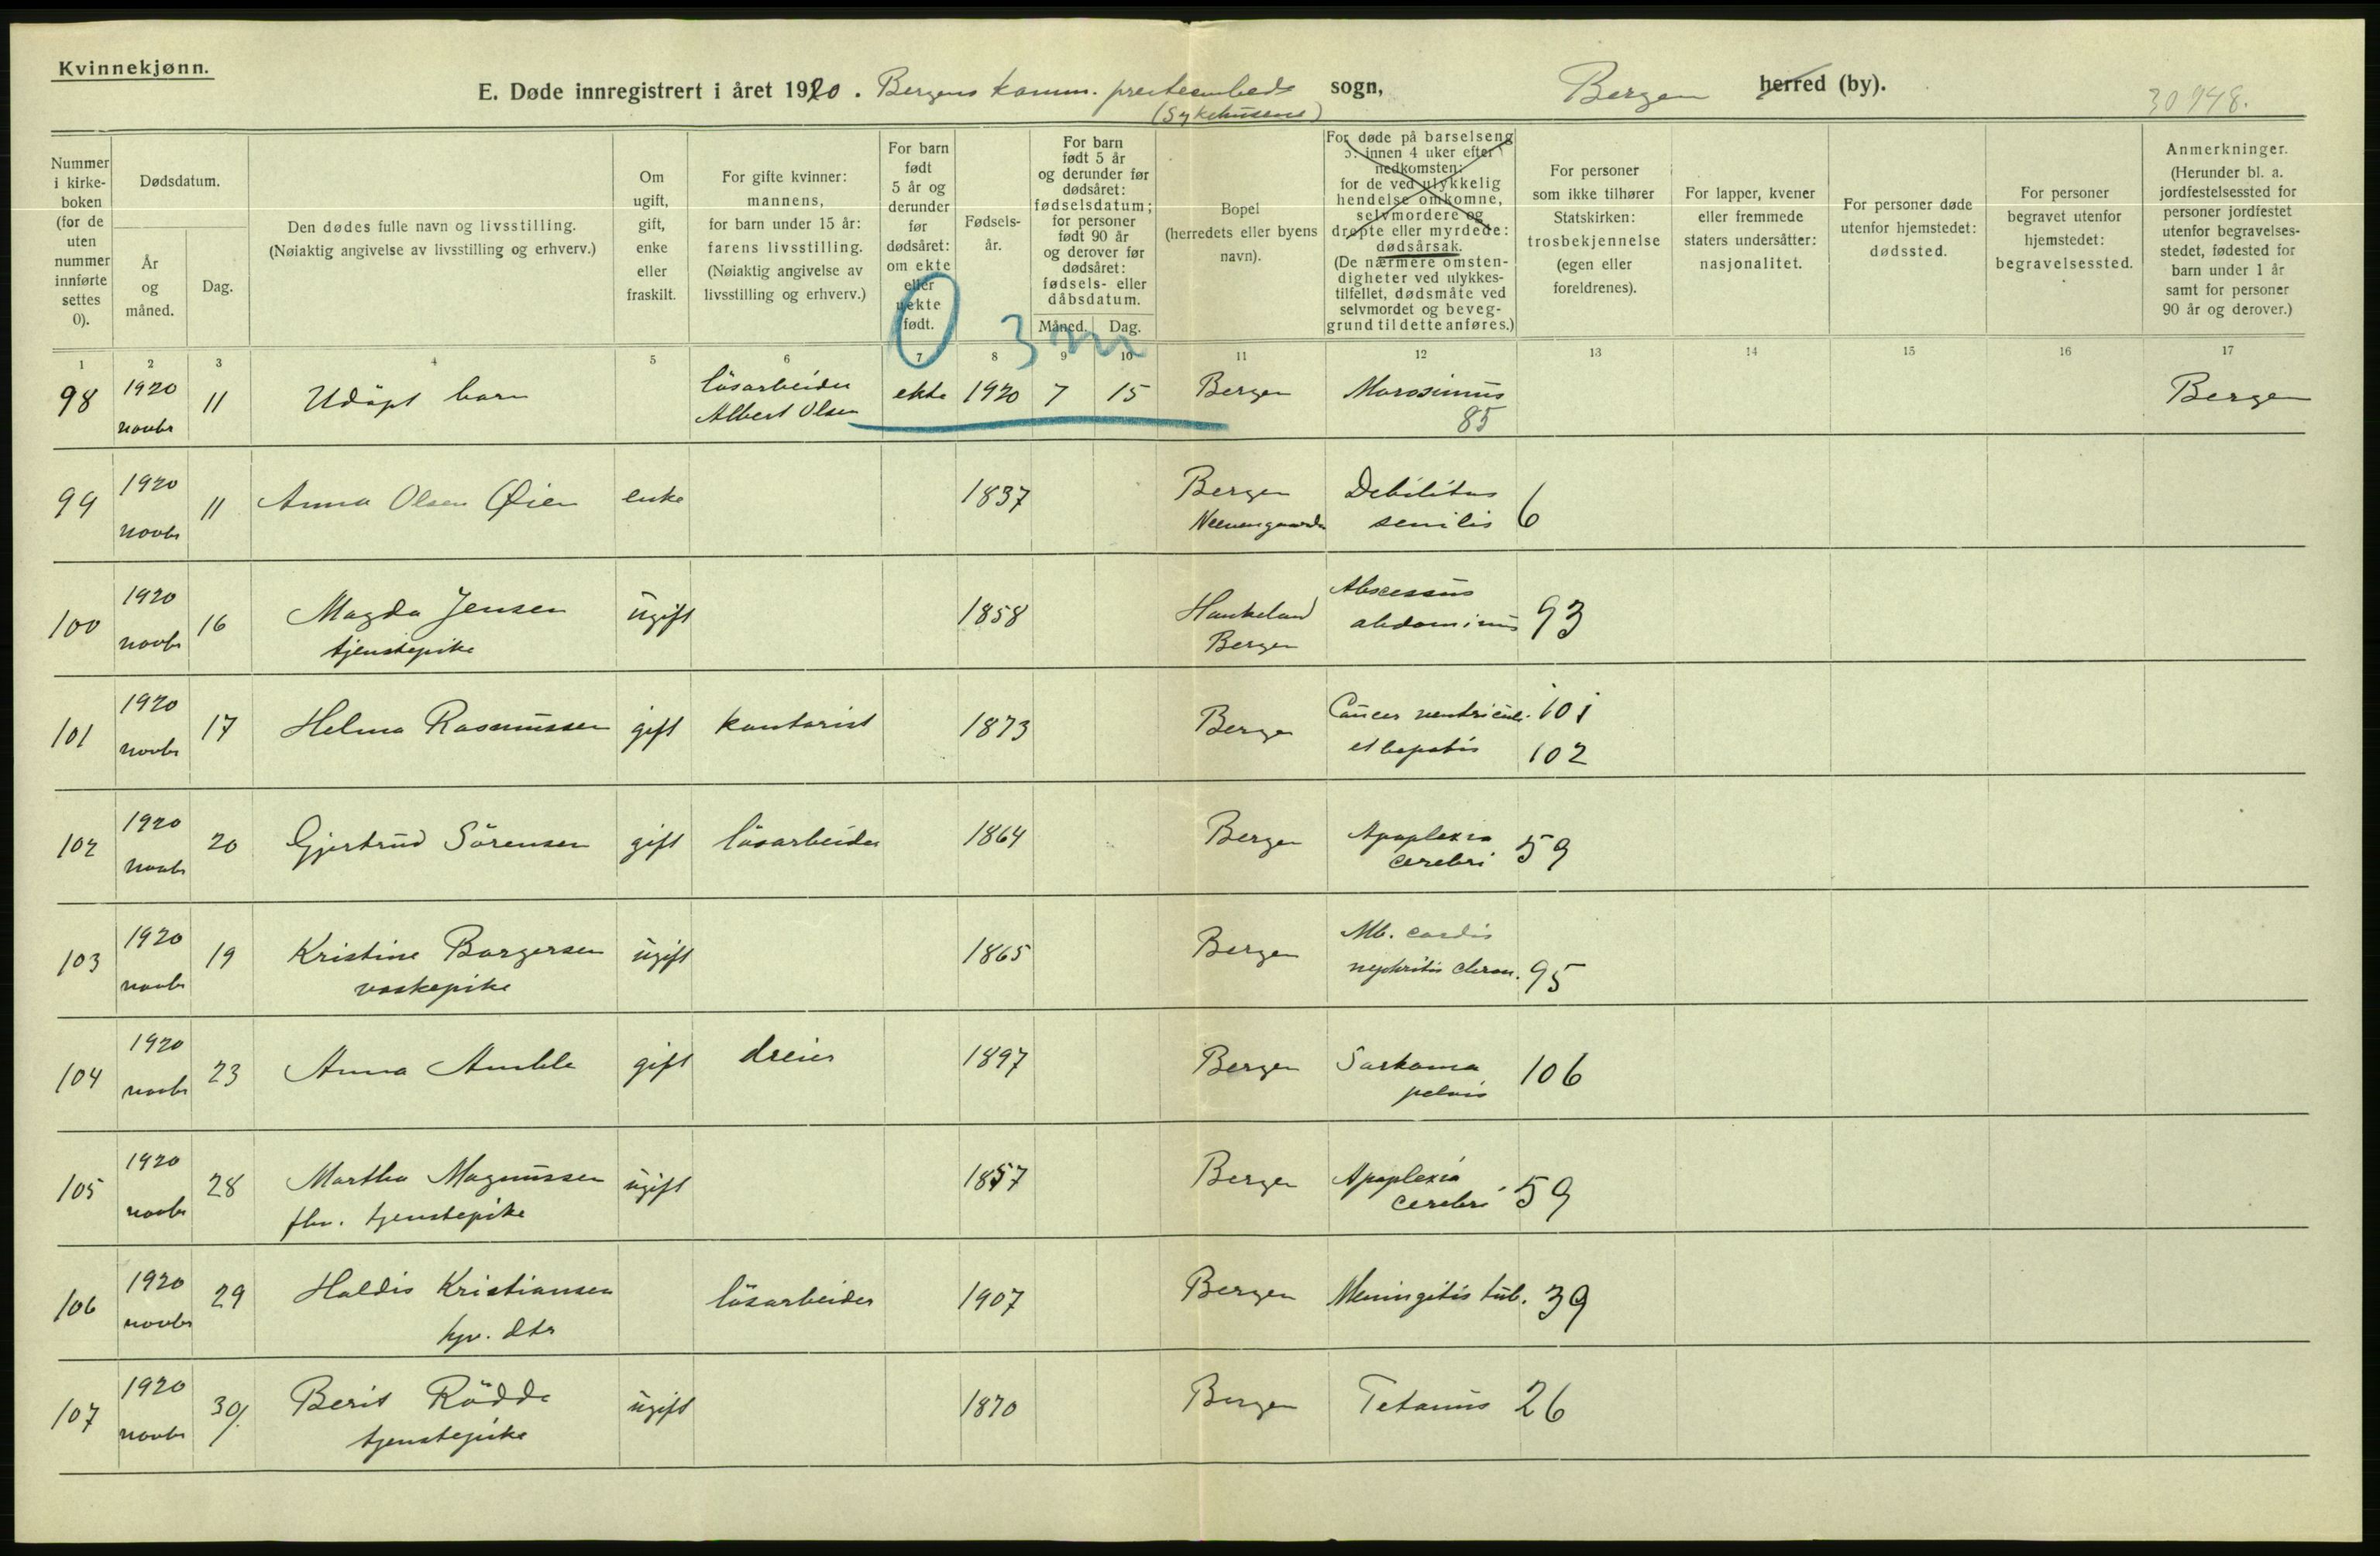 Kvinnekjønn.
E. Døde innregistrert i året 1920. Bergens komm. presteembeds sogn, Bergen herred (by).
(Sykehusene)
30948.
Nummer i kirkeboken (for de uten nummer innførte settes 0).
Dødsdatum.
År og måned.
Dag.
Den dødes fulle navn og livsstilling.
(Nøiaktig angivelse av livsstilling og erhverv.)
Om ugift, gift, enke eller fraskilt.
For gifte kvinner: mannens, for barn under 15 år: farens livsstilling.
(Nøiaktig angivelse av livsstilling og erhverv.)
For barn født 5 år og derunder før dødsåret: om ekte eller uekte født.
Fødselsår.
For barn født 5 år og derunder før dødsåret: fødselsdatum; for personer født 90 år og derover før dødsåret: fødsels- eller dåbsdatum.
Måned. Dag.
Bopel (herredets eller byens navn).
For døde på barselseng ɔ: innen 4 uker efter nedkomsten; for de ved ulykkelig hendelse omkomne, selvmordere og drepte eller myrdede: dødsårsak.
(De nærmere omstendigheter ved ulykkestilfellet, dødsmåte ved selvmordet og beveggrund til dette anføres.)
For personer som ikke tilhører Statskirken: trosbekjennelse (egen eller foreldrenes).
For lapper, kvener eller fremmede staters undersåtter: nasjonalitet.
For personer døde utenfor hjemstedet: dødssted.
For personer begravet utenfor hjemstedet: begravelsessted.
Anmerkninger.
(Herunder bl. a. jordfestelsessted for personer jordfestet utenfor begravelsesstedet, fødested for barn under 1 år samt for personer 90 år og derover.)
0 3 m
1 2 3 4 5 6 7 8 9 10 11 12 13 14 15 16 17
98 1920 novbr 11 Udöpt barn lösarbeider Albert Olsen ekte 1920 7 15 Bergen Marasimus 85 Bergen
99 1920 novbr 11 Anna Olsen Øien enke 1837 Bergen Neevengaarden Debilitas senilis 6
100 1920 novbr 16 Magda Jensen tjenstepike ugift 1858 Haukeland Bergen Abscessus abdominis 93
101 1920 novbr 17 Helma Rasmussen gift kontorist 1873 Bergen Cancer ventriculi et hepatis 101 102
102 1920 novbr 20 Gjertrud Sörensen gift lösarbeider 1864 Bergen Apoplexia cerebri 59
103 1920 novbr 19 Kristine Borgersen vaskepike ugift 1865 Bergen Mb. cordis nephritis chron. 95
104 1920 novbr 23 Anna Amble gift dreier 1897 Bergen Sarkoma pelvis 106
105 1920 novbr 28 Martha Magnussen fhv. tjenstepike ugift 1857 Bergen Apoplexia cerebri 59
106 1920 novbr 29 Haldis Kristiansen hjv. dtr lösarbeider 1907 Bergen Meningitis tub. 39
107 1920 novbr 30/ Berit Rödde tjenstepike ugift 1870 Bergen Tetanus 26